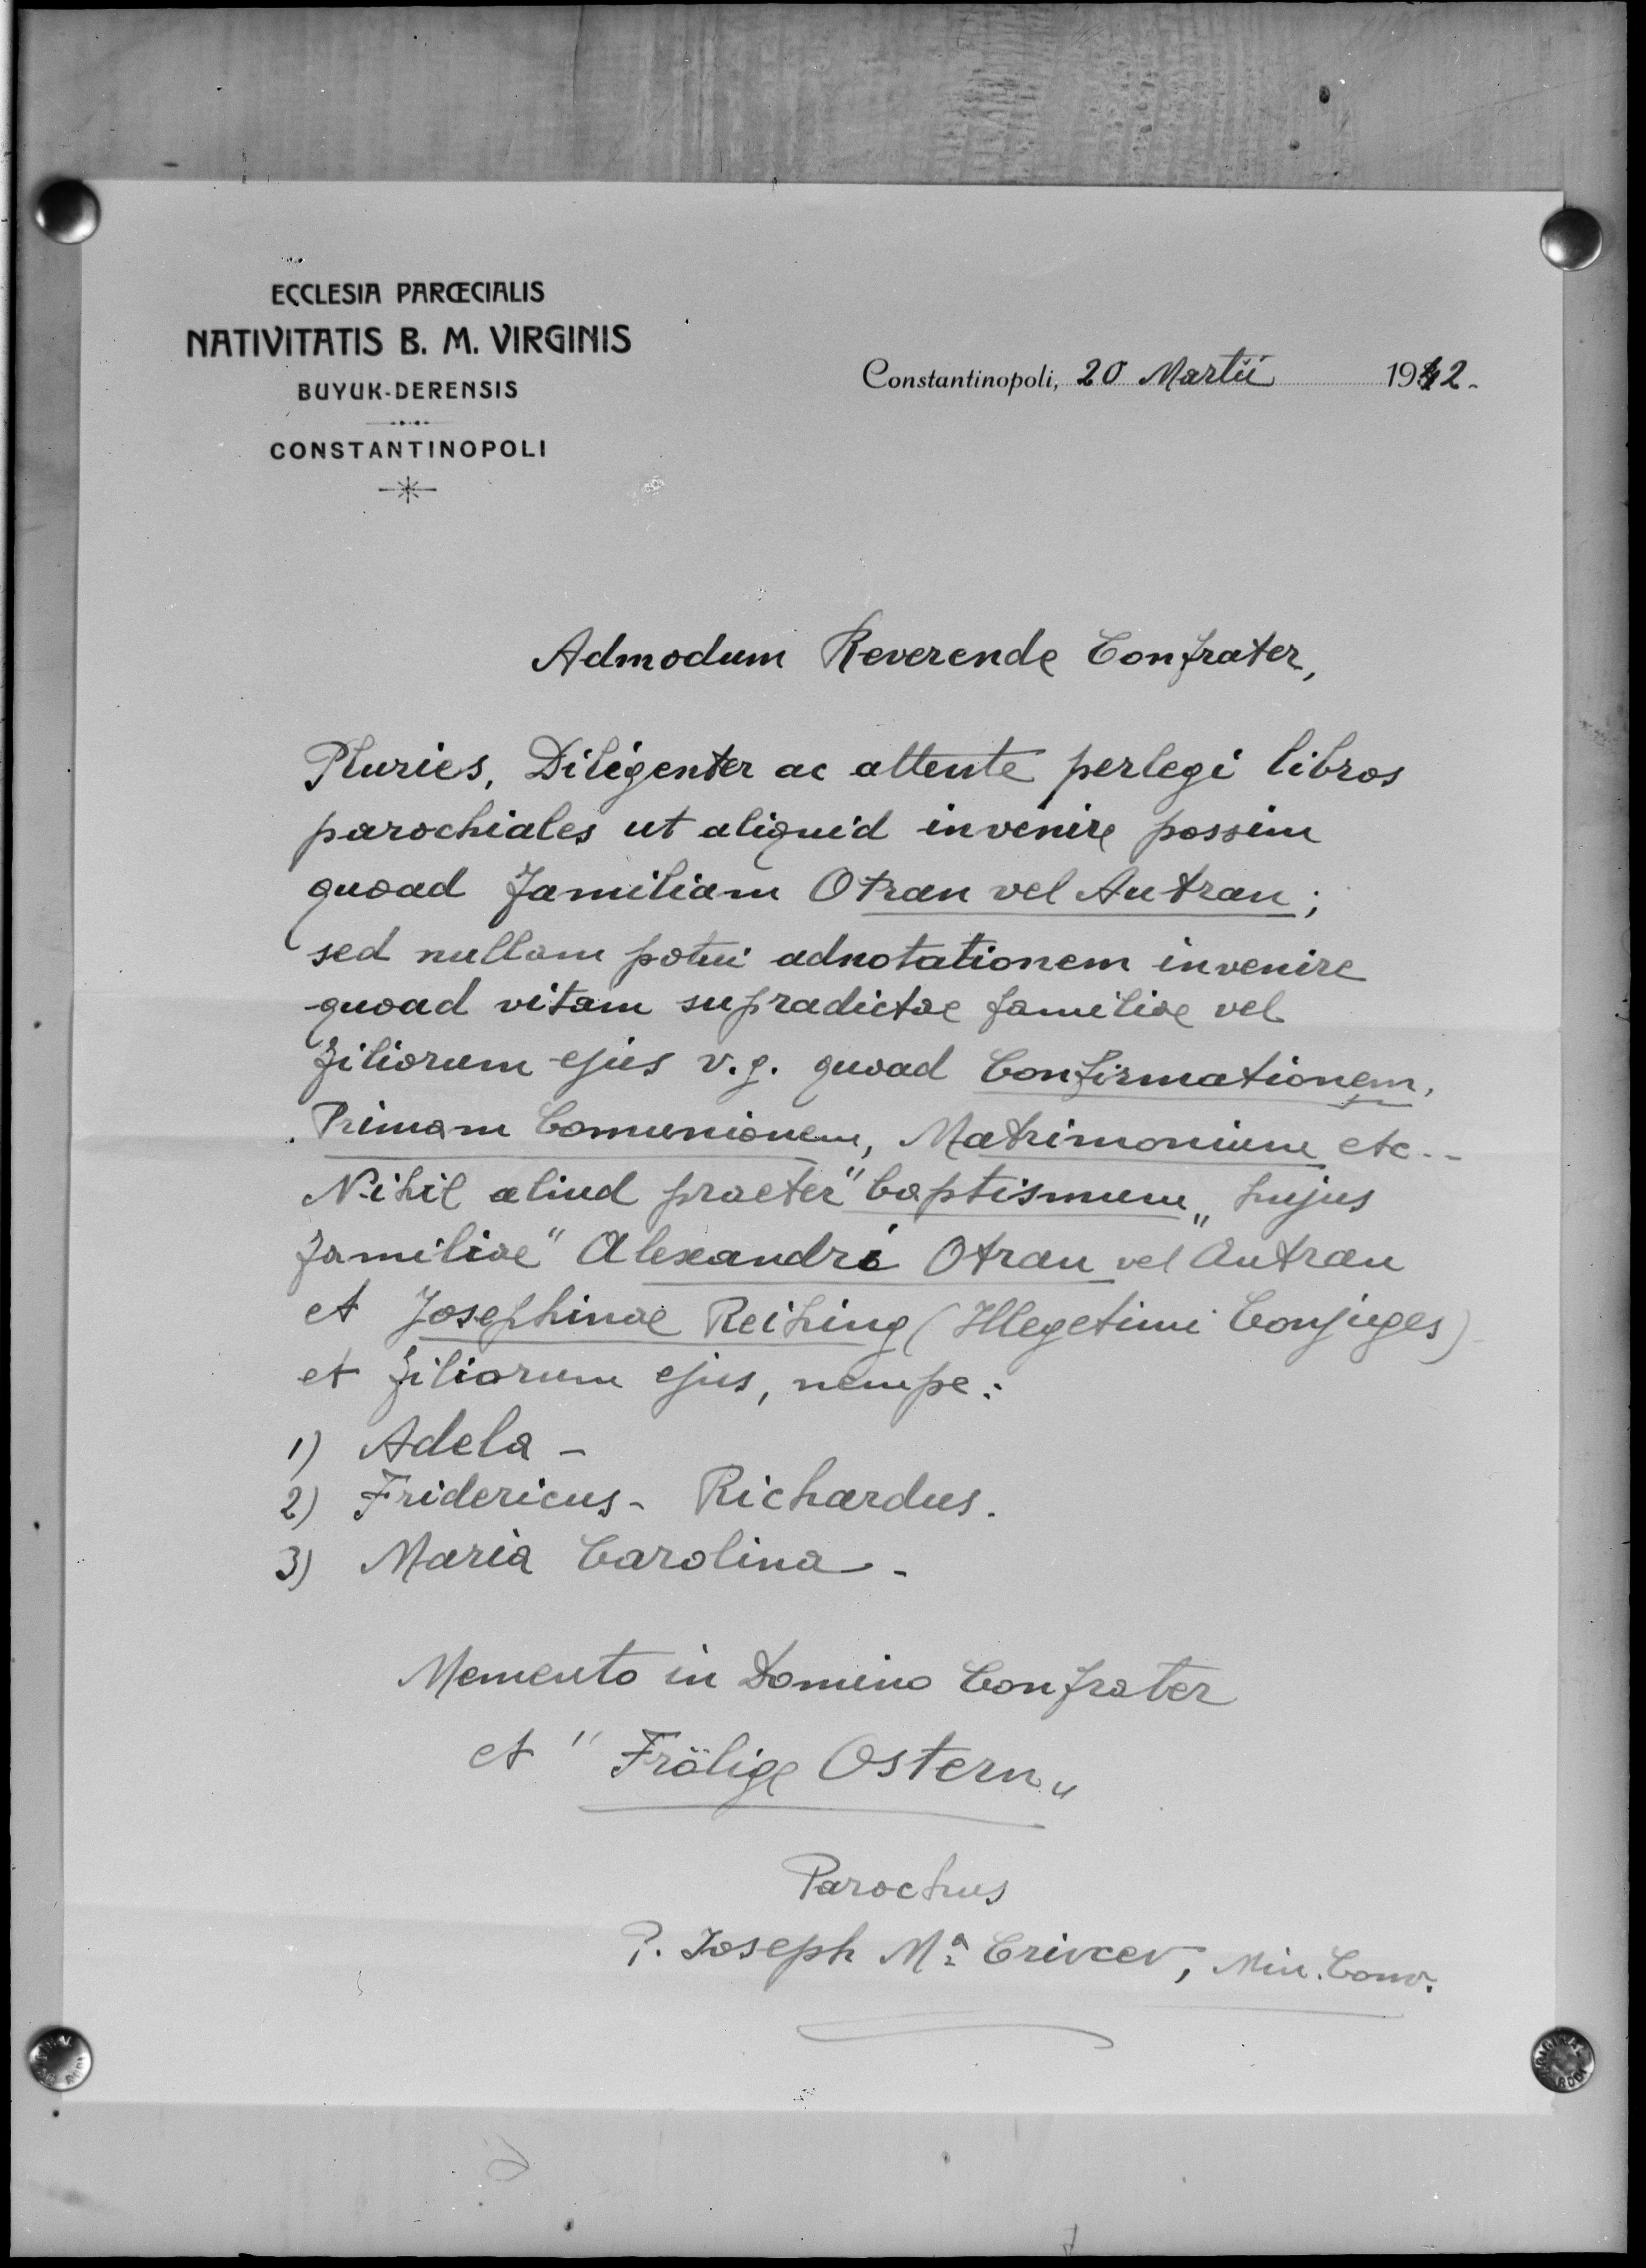 ECCLESIA PARŒCIALIS
NATIVITATIS B. M. VIRGINIS
BUYUK-DERENSIS
CONSTANTINOPOLI
Constantinopoli, 20 Martii 1942.
Admodum Reverende Confrater,
Pluries, Diligenter ac attente perlegi libros
parochiales ut aliquid invenire possim
quoad familiam Otran vel Autran;
sed nullam potui adnotationem invenire
quoad vitam supradictae familiae vel
filiorum ejus v.g. quoad Confirmationem,
Primam Comunionem, Matrimonium etc..
Nihil aliud praeter "baptismum" hujus
familiae "Alexandri Otran vel Autran
et Josephinae Reihing (Illegetimi Conjuges)
et filiorum ejus, nempe:
1) Adela -
2) Fridericus - Richardus.
3) Maria Carolina -
Memento in Domino Confrater
et "Frölige Ostern"
Parochus
P. Joseph Mª Crivcev, Min. Conv.